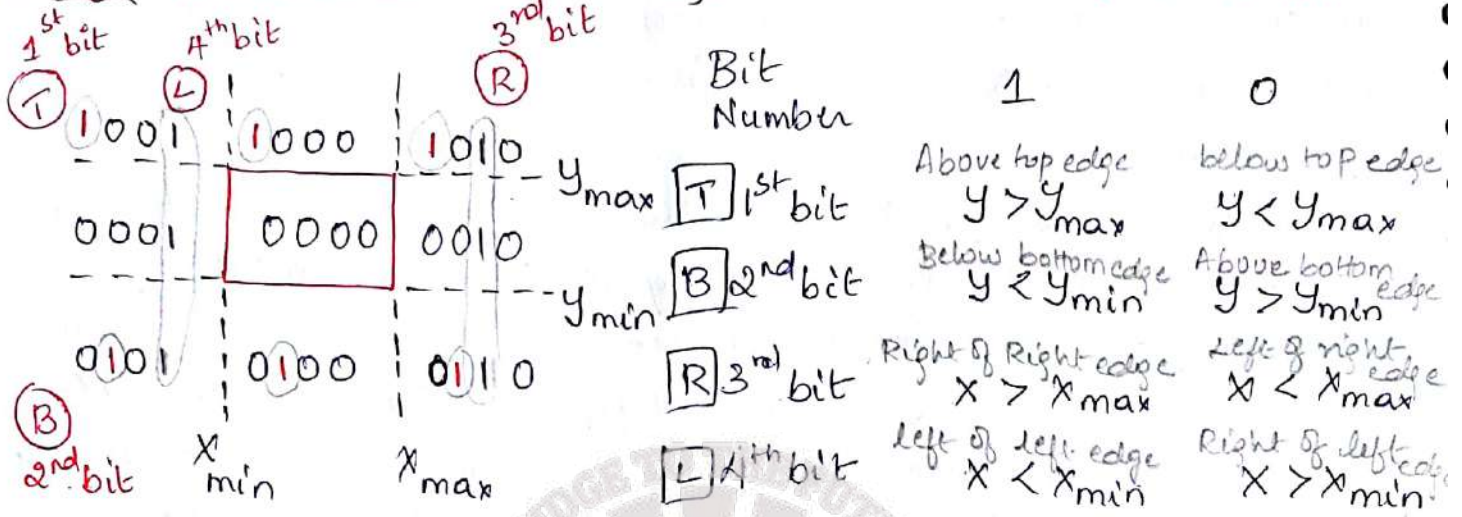 1st bit 4th bit 3rd bit
T L R
1001 1000 1010
ymax
0001 0000 0010
ymin
0101 0100 0110
B
2nd bit
xmin xmax
Bit Number 1 0
T 1st bit Above top edge y > ymax below top edge y < ymax
B 2nd bit Below bottom edge y < ymin Above bottom edge y > ymin
R 3rd bit Right of Right edge x > xmax Left of right edge x < xmax
L 4th bit left of left edge x < xmin Right of left edge x > xmin